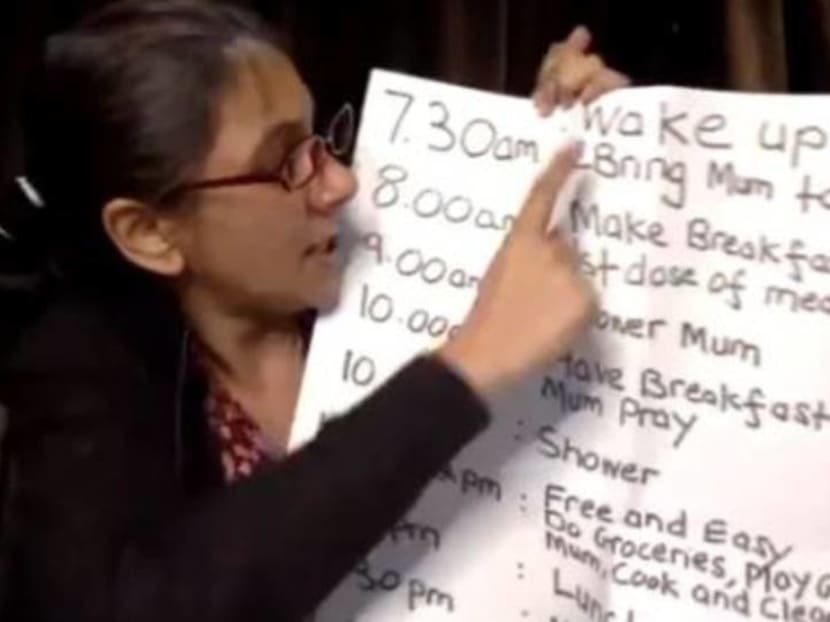 7.30am : Wake up
- Bring Mum to
8.00am Make Breakfast
1st dose of med
9.00am Shower Mum
10.00 Have Breakfast
Mum Pray
10 : Shower
pm : Free and Easy
Do Groceries, Play
Mum, Cook and Clean
pm : Lunch
30 pm :